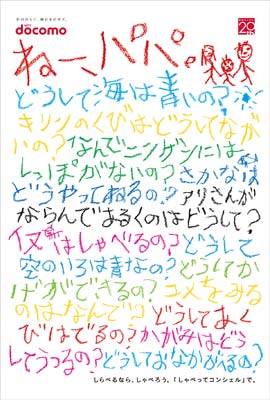 docomo
ねー、パパ。
どうして海は青いの?
キリンのくびはどうしてなが
いの?なんでニンゲンには
しっぽがないの?さかなは
どうやってねるの?アリさんが
ならんであるくのはどうして?
イヌはしゃべるの?どうして
空のいろは青なの?どうしてか
げができるの?コメをみる
のはなんでコ どうしてあく
びはでるの?かがみはどう
してうつるの?どうしておなかがへるの?
しらべるなら、しゃべろう。「しゃべってコンシェル」で。